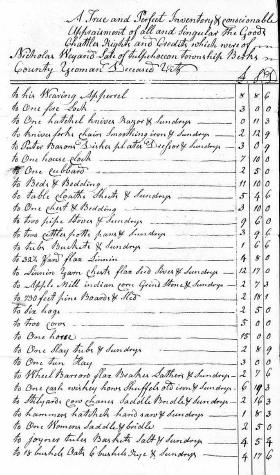 A True and Perfect Inventory & consionable
Appraisment of all and Singular the Goods
Chattles Rights and Credits which were of
Nicholas Late of Tulpehocon Township Berks
County Yeoman Deceased Vitz
£ S D
to his Wearing Apperrel 8 8 6
to One five Lock 3 0 0
to One hatchel knives Razor & Sundrys 0 11 3
to knives forks chairs Smothing iron & Sundrys 2 12 9
to Puter Basons Dishes plates & Sundrys 3 0 9
to One house Clock 7 10 0
to One Cubbard 2 5 0
to Beds & Bedding 11 10 0
to table Cloaths Sheets & Sundrys 5 4 6
to One Chest & Bedding 3 10 0
to two pipe Stoves & Sundrys 9 6 0
to two cettles potts pans & Sundrys 3 9 6
to tubs Buckets & Sundrys 1 6 6
to 32 Yard flax Linnin 4 8 0
to Linnin Yarn chests flax Sives & Sundrys 12 17 0
to Apple Mill indian corn Grind Stone & Sundrys 2 7
to 730 feet pine Boards & Sled 2 18
to Six hogs 2 5 0
to two cows 5 0 0
to One horse 15 0 0
to One Slay tubs & Sundrys 2 8 9
to One Hay 3 0 0
to Wheel Barrow flax Beaker & Sundrys 2 7 6
to One cask wiskey hows Shuffels old iron & Sundrys 6 19 3
to Stilyards cow chanes Saddle Bridle & Sundrys 2 16 3
to hammers hatchets hand saw & Sundrys 1 8 3
to One Womens Saddle & bridle 2 5 0
to Joyners tules Baskets Salt & Sundrys 4 5 4
to 18 bushels Oats 6 bushels Rye & Sundrys 4 17 6